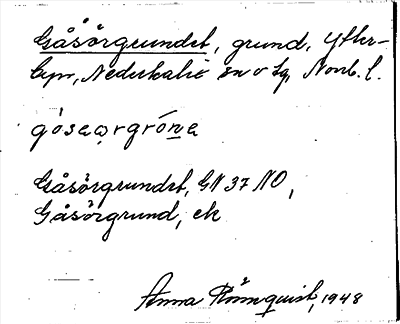 Gåsörgrundet, grund, Ytter-
byn, Nederkalix sn o tg, Norrb. l.
gósẹọrgróṉe
Gåsörgrundet, GN 37 NO,
Gåsörgrund, ek
Anna Rönnquist, 1948